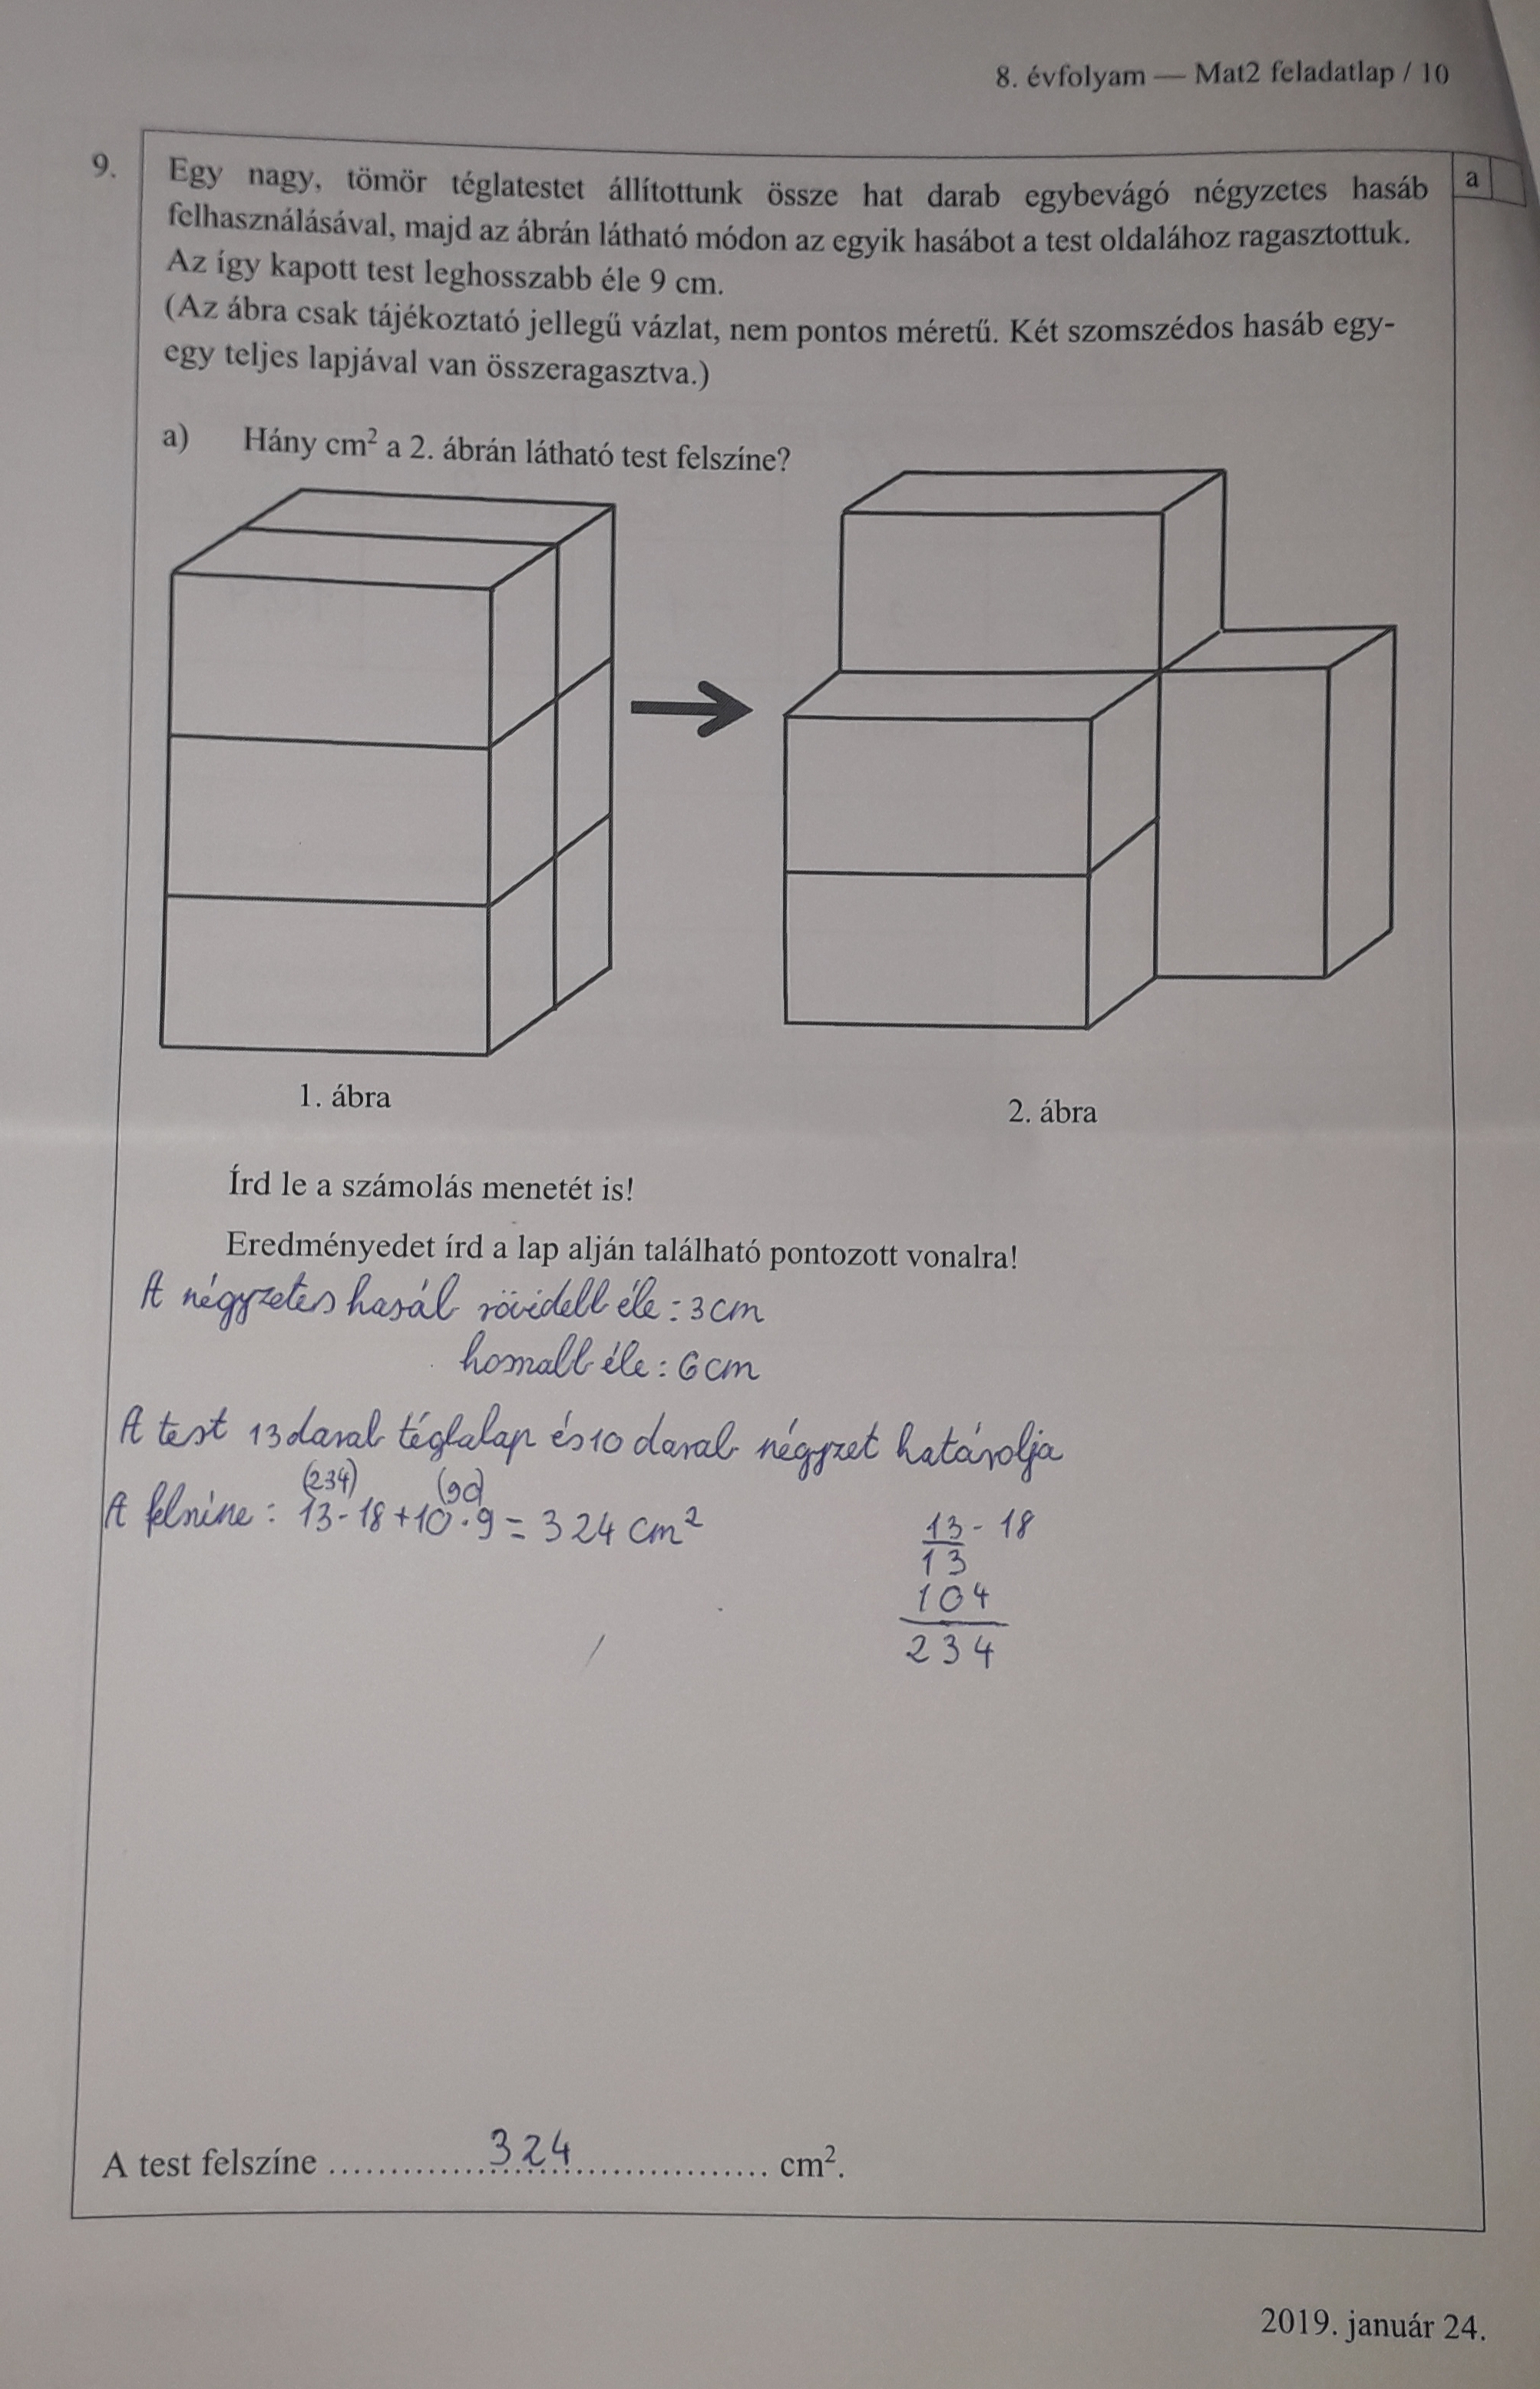 8. évfolyam — Mat2 feladatlap / 10
9. Egy nagy, tömör téglatestet állítottunk össze hat darab egybevágó négyzetes hasáb
a
felhasználásával, majd az ábrán látható módon az egyik hasábot a test oldalához ragasztottuk.
Az így kapott test leghosszabb éle 9 cm.
(Az ábra csak tájékoztató jellegű vázlat, nem pontos méretű. Két szomszédos hasáb egy-
egy teljes lapjával van összeragasztva.)
a) Hány cm² a 2. ábrán látható test felszíne?
1. ábra
2. ábra
Írd le a számolás menetét is!
Eredményedet írd a lap alján található pontozott vonalra!
A négyzetes hasáb rövidebb éle: 3 cm
hosszabb éle: 6 cm
A test 13 darab téglalap és 10 darab négyzet határolja
(234) (90)
A felszíne: 13·18+10·9 = 324 cm²
13·18
13
104
234
A test felszíne ............ 324 ............ cm².
2019. január 24.